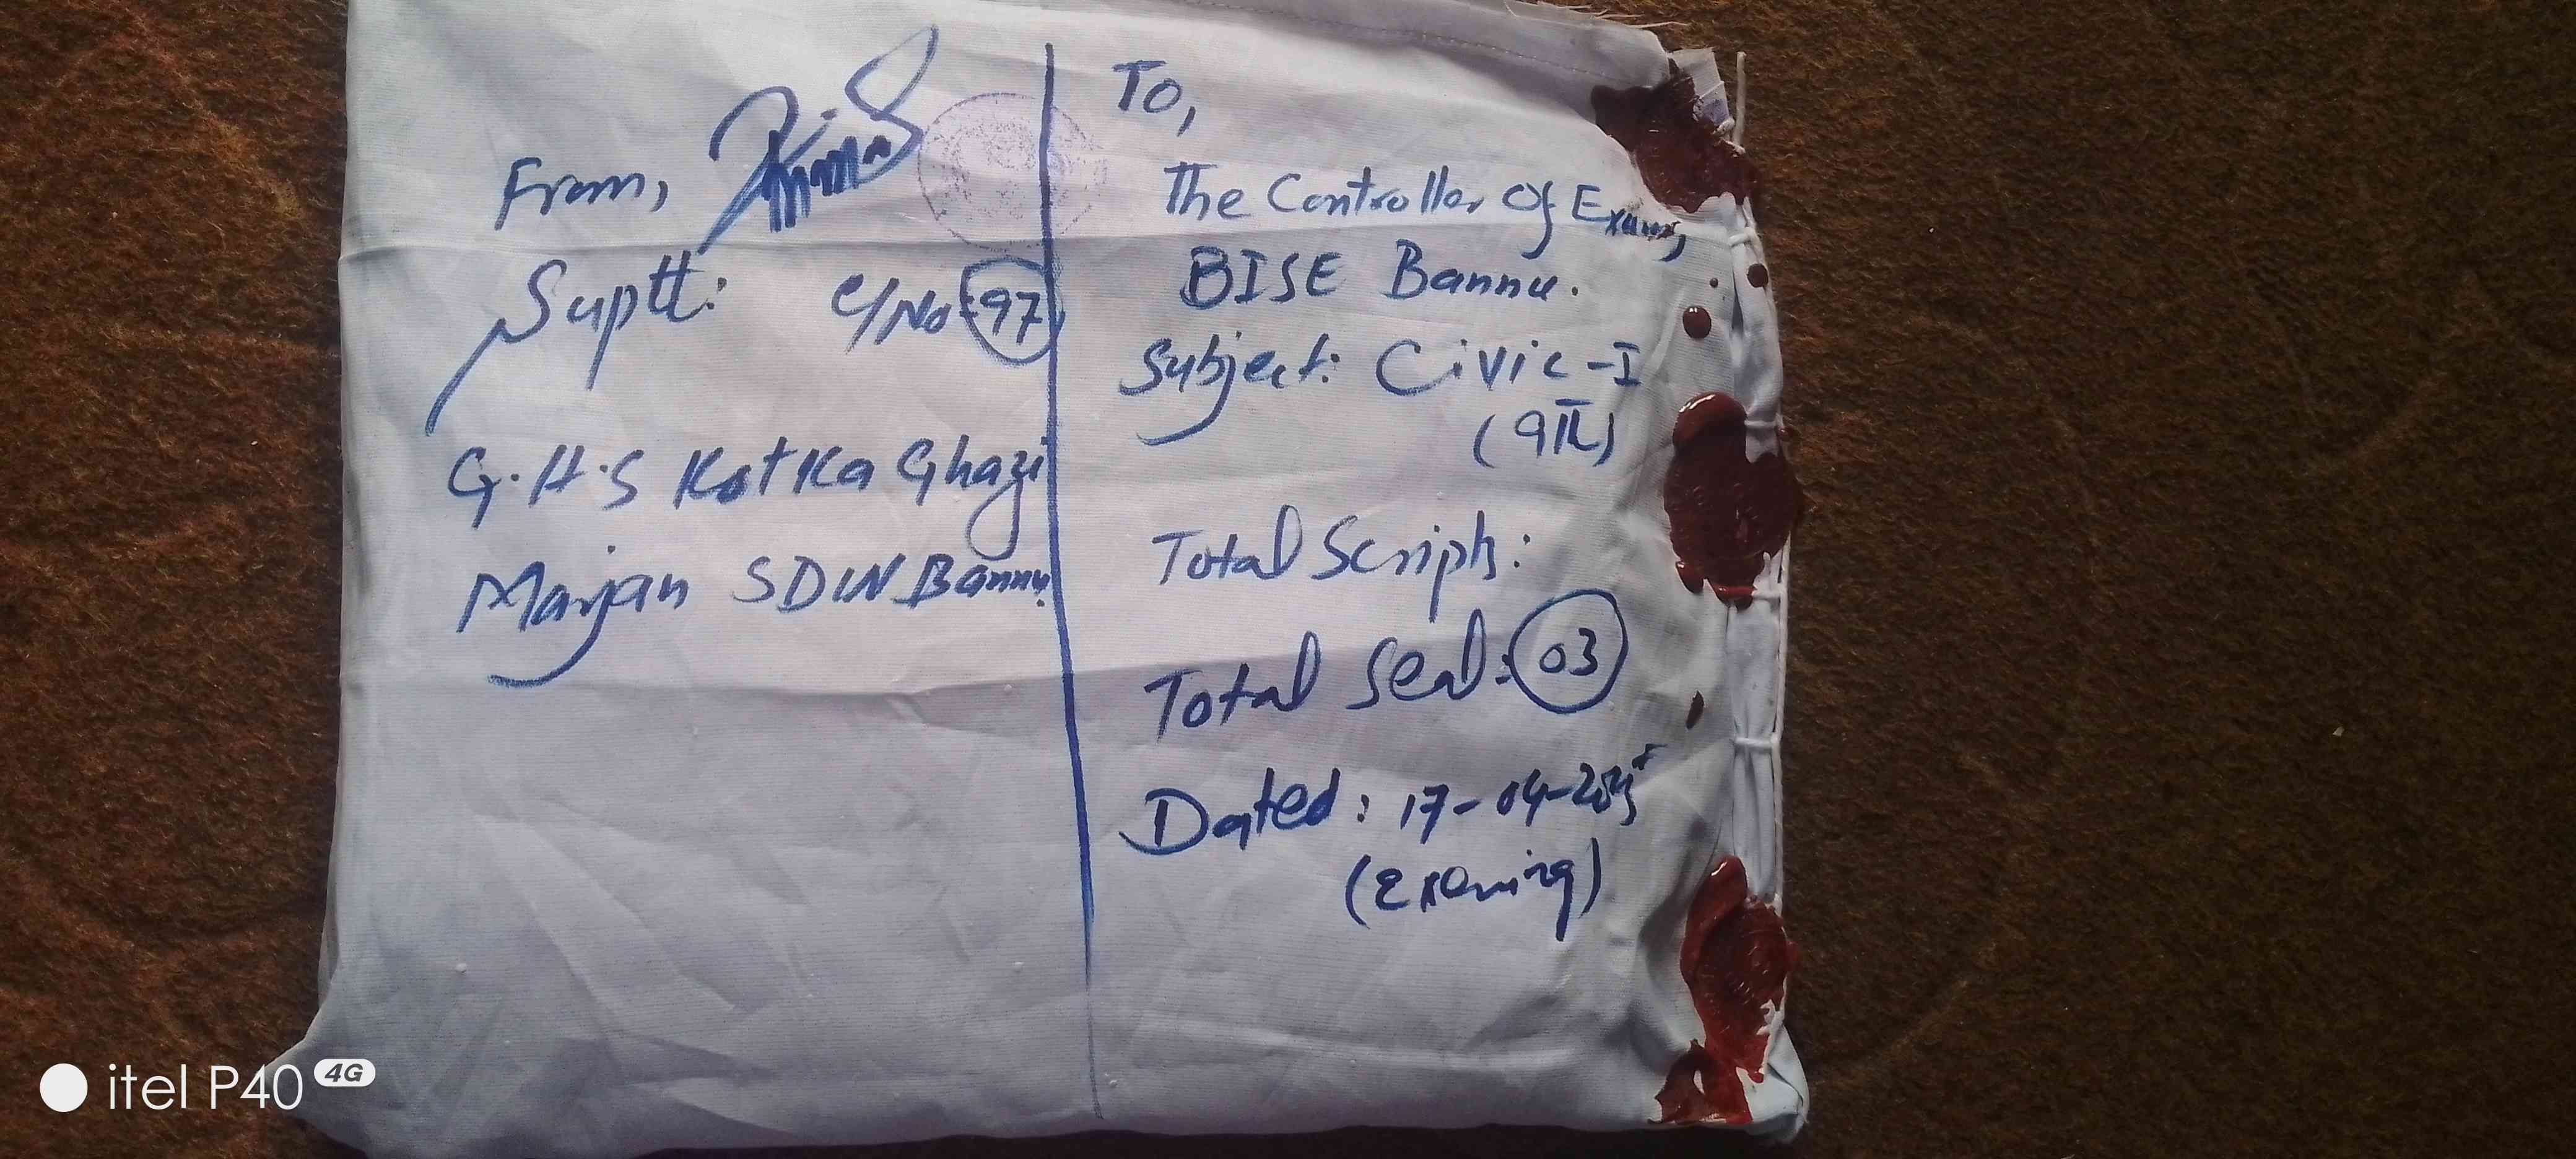 From,
Suptt: C/No: 97
G.H.S Kotka Ghazi
Marjan SDW Bannu.
To,
The Controller Of Exams,
BISE Bannu.
Subject: Civic-I
(9th)
Total Scripts:
Total Seal: 03
Dated: 17-04-2025
(Evening)
itel P40 4G